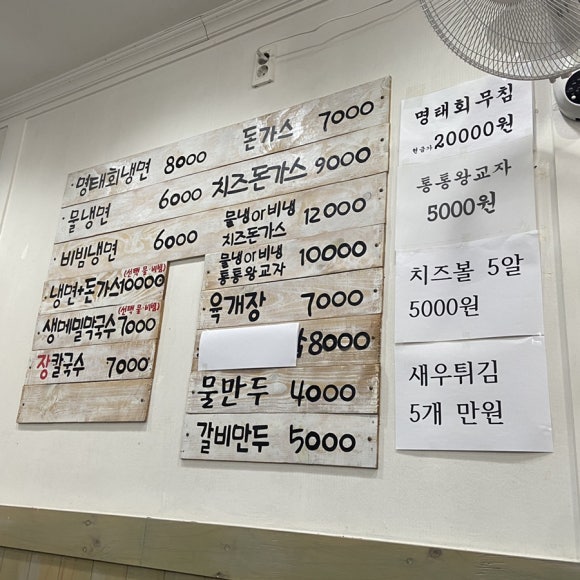 명태회냉면 8000
물냉면 6000
비빔냉면 6000
(선택 물·비빔)
냉면+돈가스 10000
(선택 물·비빔)
생메밀막국수 7000
장칼국수 7000
돈가스 7000
치즈돈가스 9000
물냉or비냉
치즈돈가스 12000
물냉or비냉
통통왕교자 10000
육개장 7000
8000
물만두 4000
갈비만두 5000
명태회무침
현금가 20000원
통통왕교자
5000원
치즈볼 5알
5000원
새우튀김
5개 만원